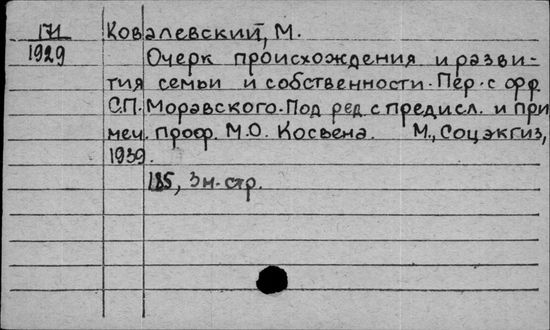 171 Ковалевский, М.
1929 Очерк происхождения и разви-
тия семьи и собственности. Пер. с фр.
С.П. Моравского. Под ред. с предисл. и при
меч. проф. М.О. Косвена. М., Соцэкгиз,
1939.
185, 3 н. стр.